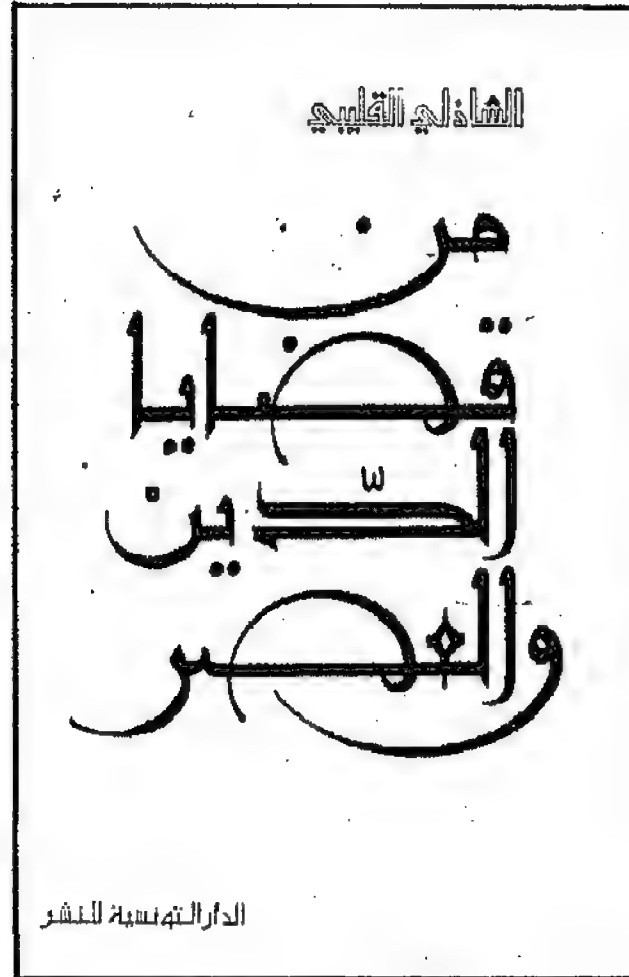 الشاذلي القليبي
من
قضايا
الدّين
والعصر
الدار التونسية للنشر